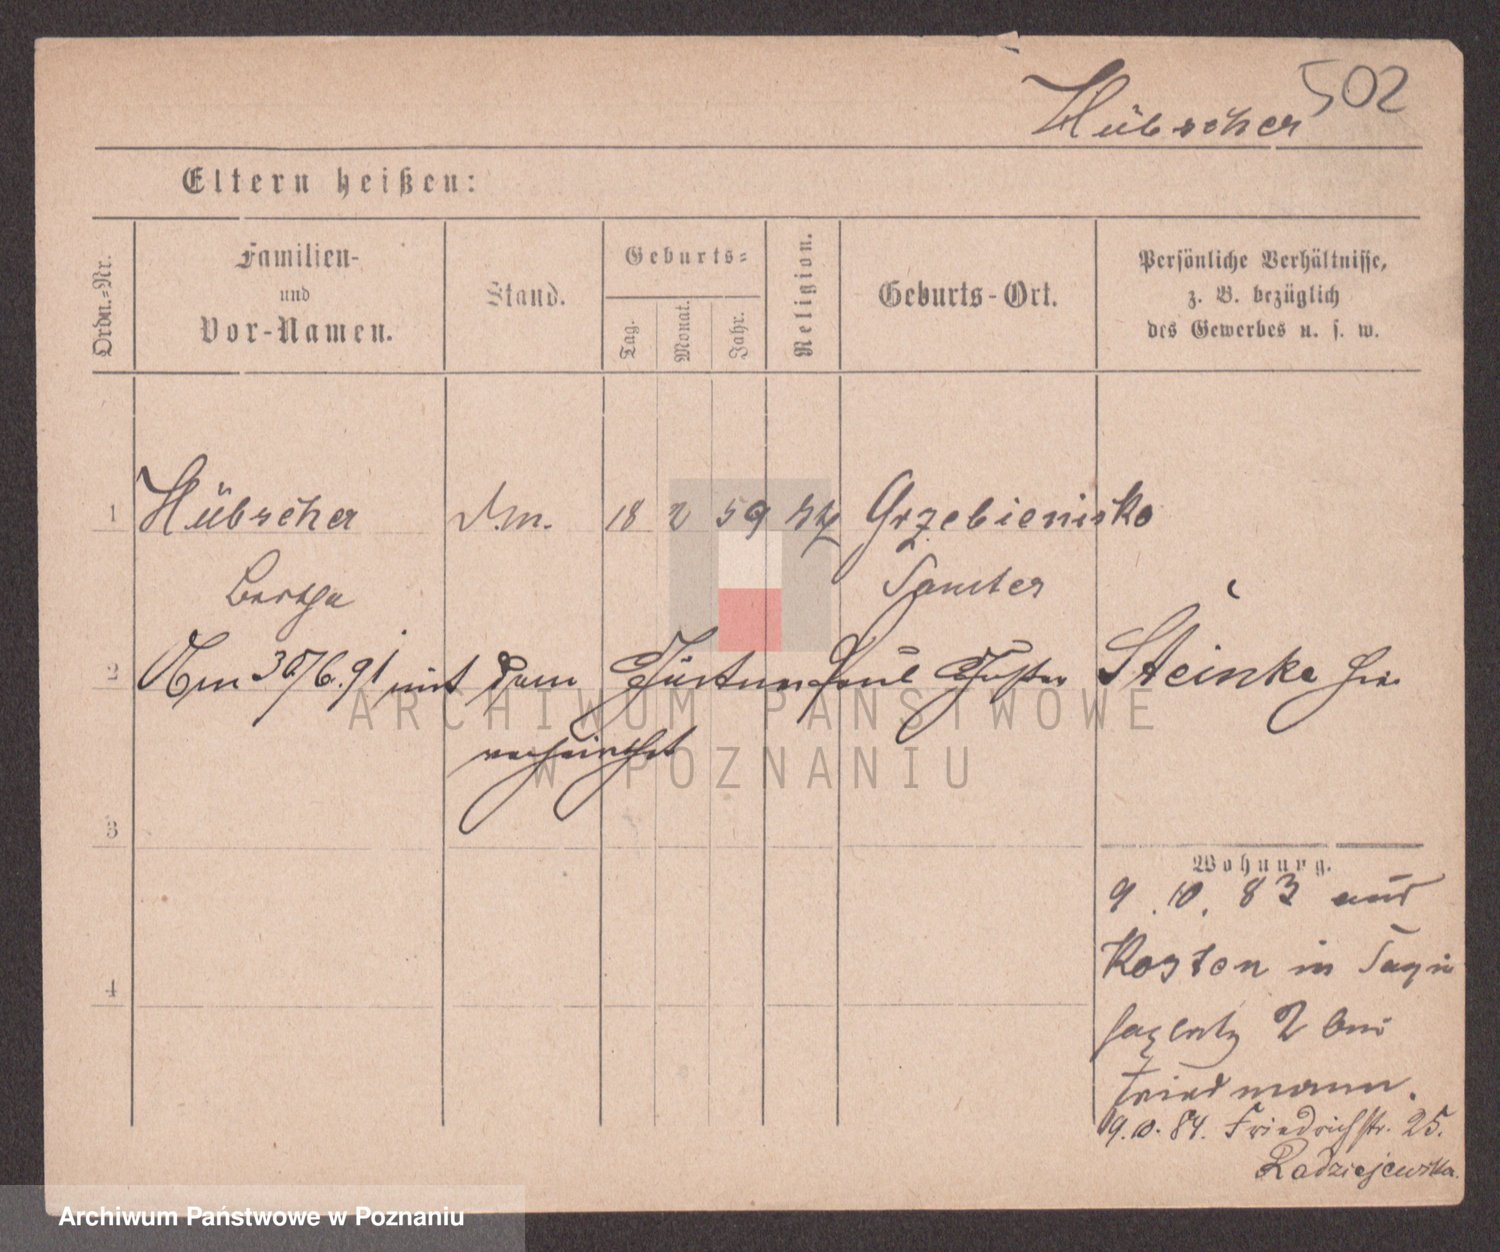 502
Hübscher
Eltern heißen:
Ordn.-Nr.
Familien-
und
Vor-Namen.
Stand.
Geburts-
Tag.
Monat.
Jahr.
Religion.
Geburts-Ort.
Persönliche Verhältnisse,
z. B. bezüglich
des Gewerbes u. s. w.
1 Hübscher 18 2 59 Grzebienisko
Bertha Samter
2 Am 30/6.91 mit dem Paul Gustav Steinke hier
verheirathet
3
Wohnung.
9.10.83 aus
Kosten in
4
2 bei
Friedmann.
9.10.84. Friedrichstr. 25.
Radziejewska.
ARCHIWUM PAŃSTWOWE
W POZNANIU
Archiwum Państwowe w Poznaniu